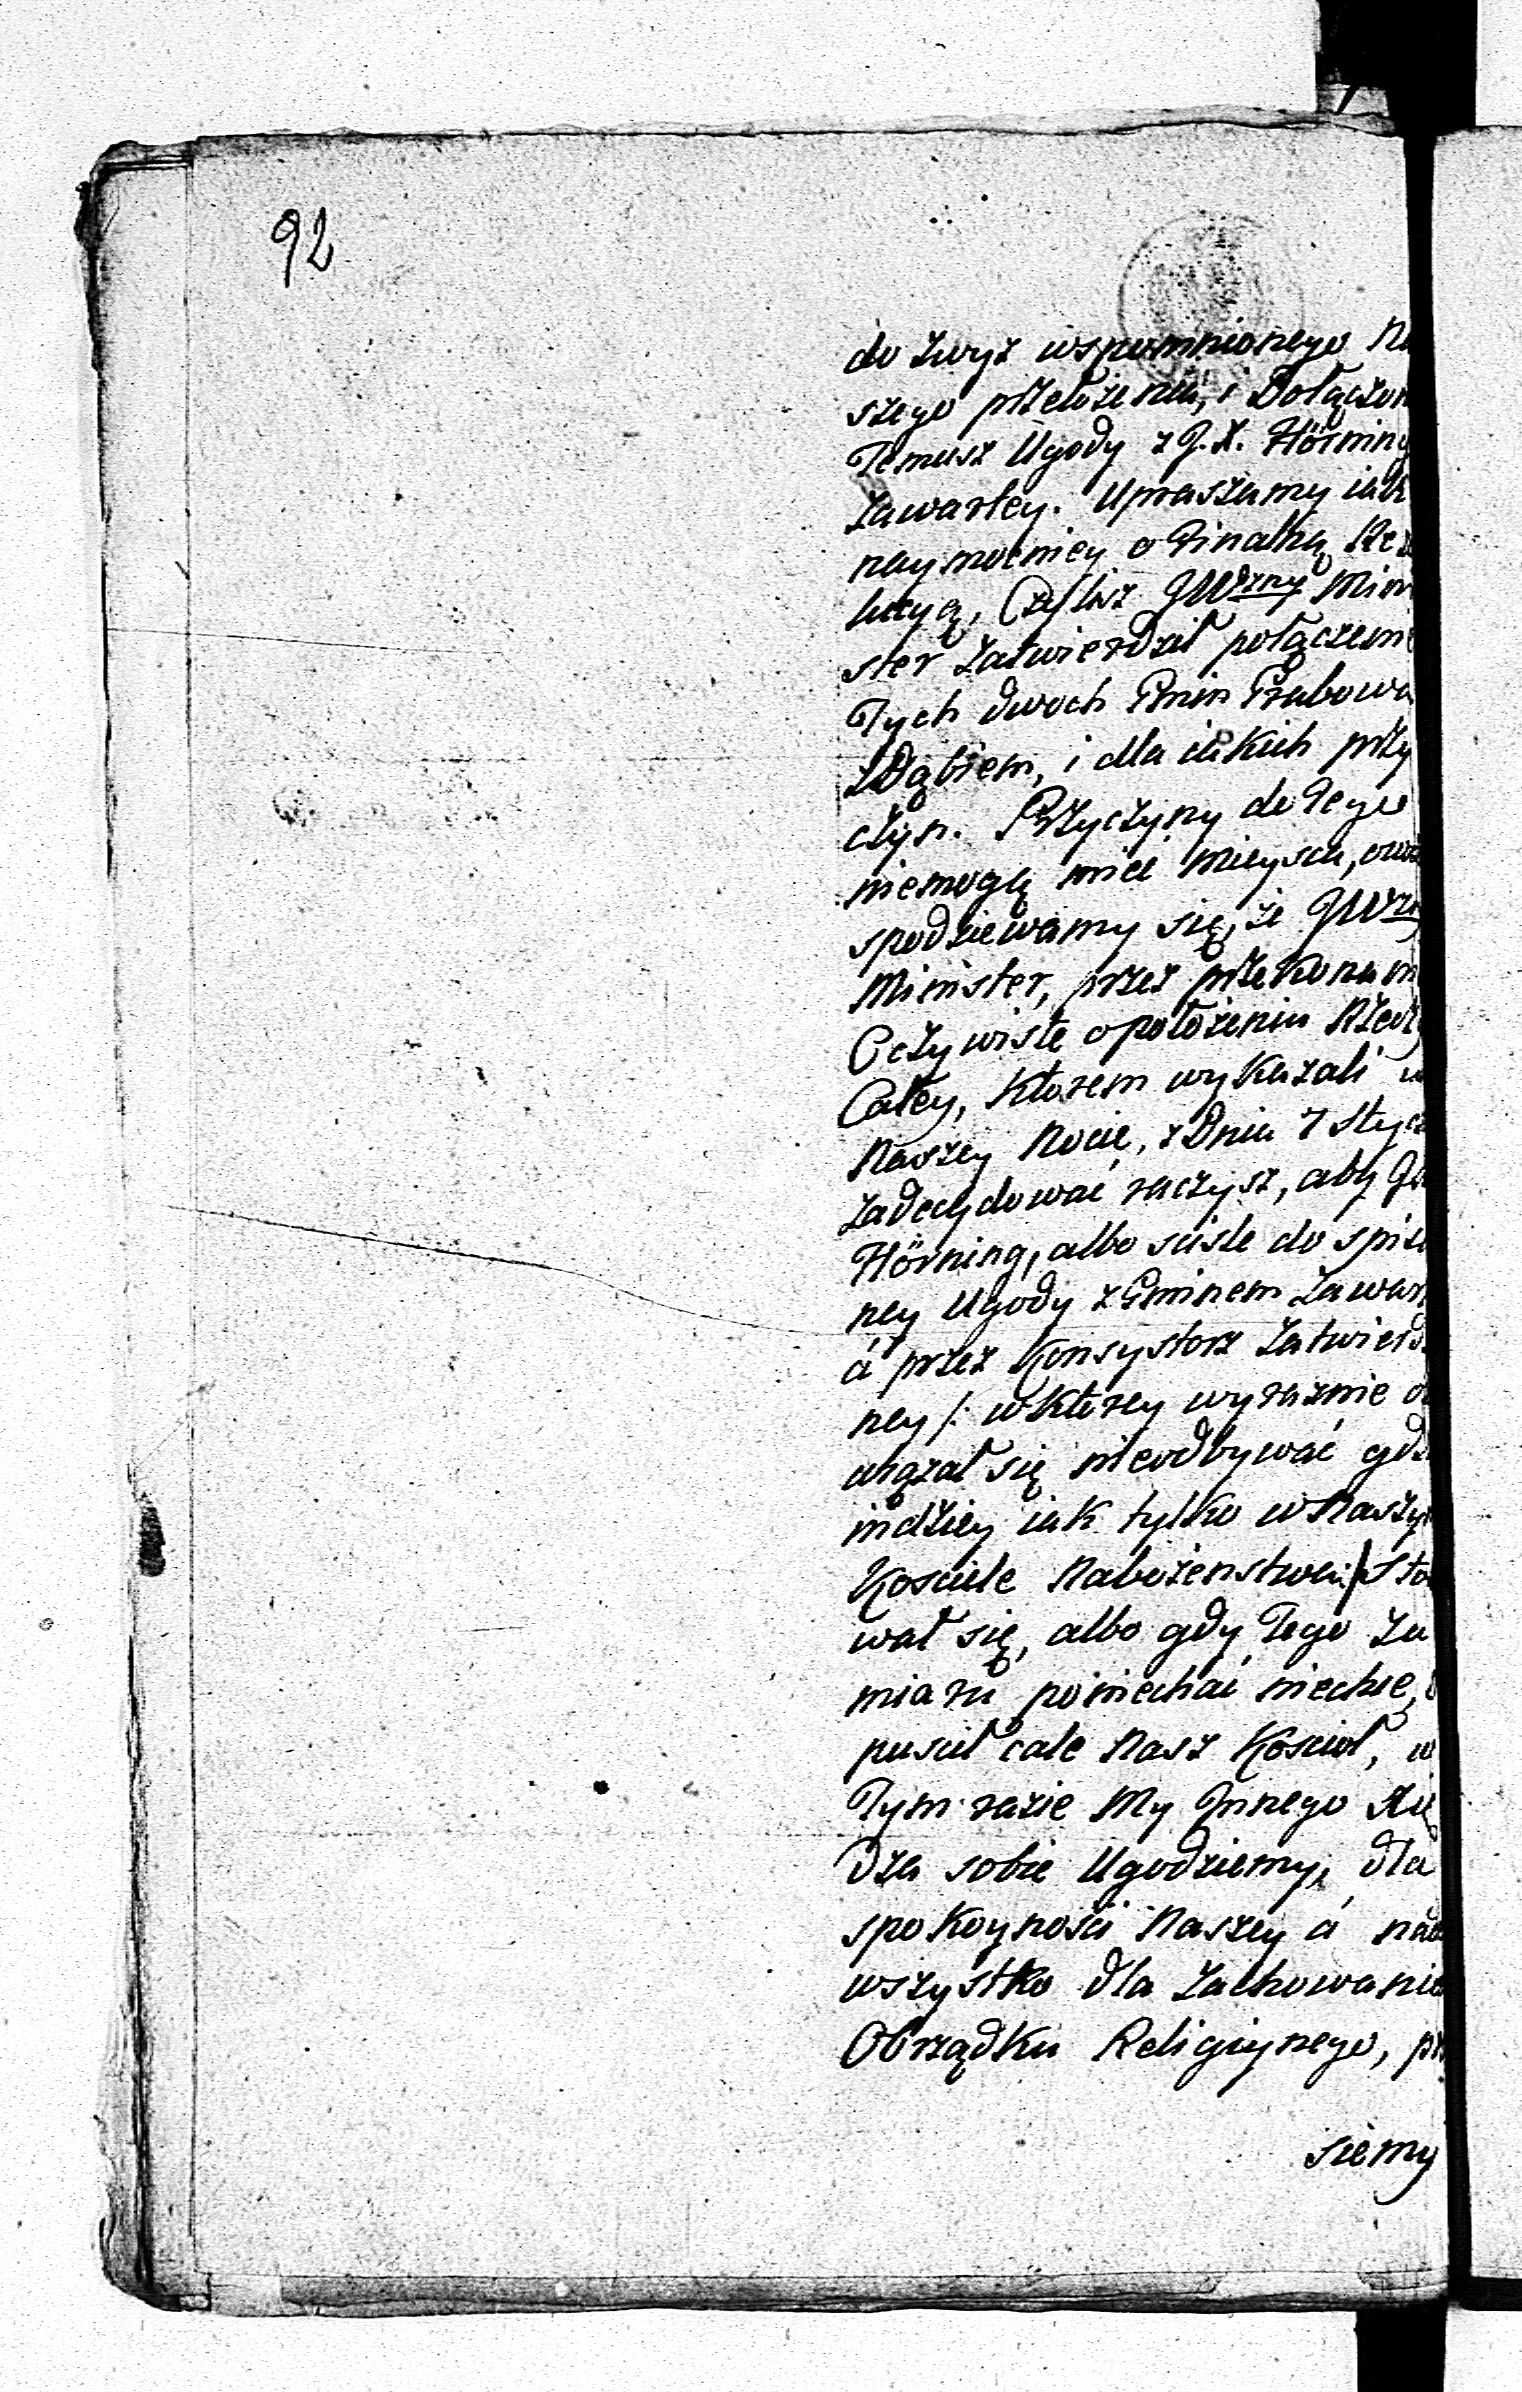 92
do zwyż wspomnionego Na
szego przełożenia, i Dołączon
Temusz Ugody z J. X. Hörning
zawartey. Upraszamy iak
naymocniey o Finalną Rez
lucyą, Czylisz JWżny Mini
ster zatwierdził połączenie
Tych dwoch Gmin Grabowa
z Dąbiem, i dla iakich przy
czyn. Przyczyny do Tego
niemogą mieć mieysca, owsz
spodziewamy się, że JWżn
Minister, przez przekonani
Oczywiste o położeniu Rzeczy
Całey, ktorem wykazali w
Naszey Nocie, z Dnia 7 Stycz
zadecydować raczysz, aby
Hörning, albo scisle do spisa
ney Ugody z Gminem zawar
á przez Konsystorz zatwierdz
ney /: w ktorey wyraznie o
wiązał się nieodbywać gdz
indziey iak tylko w Naszy
Kosciele Nabożenstwa :/ Sto
wał się, albo gdy Tego Za
miaru poniechać niechce,
puscił cale Nasz Kosciol, w
Tym razie My Innego Xię
dza sobie Ugodziemy, dla
spokoyności Naszey á nad
wszystko dla zachowania
Obrządku Religiynego, pr
siemy